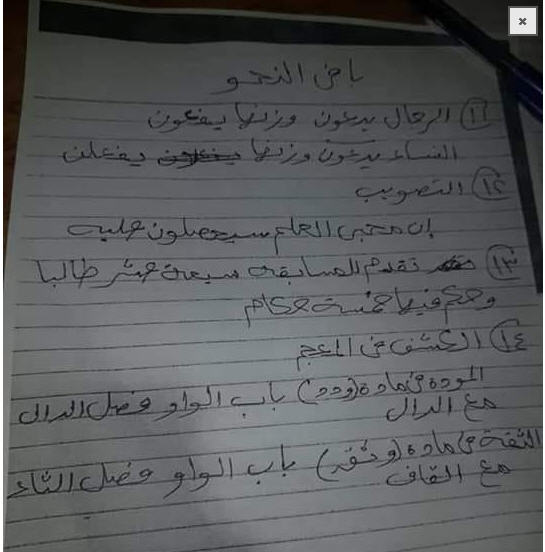 باقى النحو
(١١) الرجال يدعون وزنها يفعون
النساء يدعون وزنها يفعلن
(١٢) التصويب
إن محبى العلم سيحصلون عليه
(١٣) تقدم للمسابقه سبعة عشر طالبا
وحكم فيها خمسة حكام
(١٤) الكشف فى المعجم
المودة فى مادة (ودد) باب الواو فصل الدال
مع الدال
الثقة فى مادة (وثق) باب الواو فصل الثاء
مع القاف